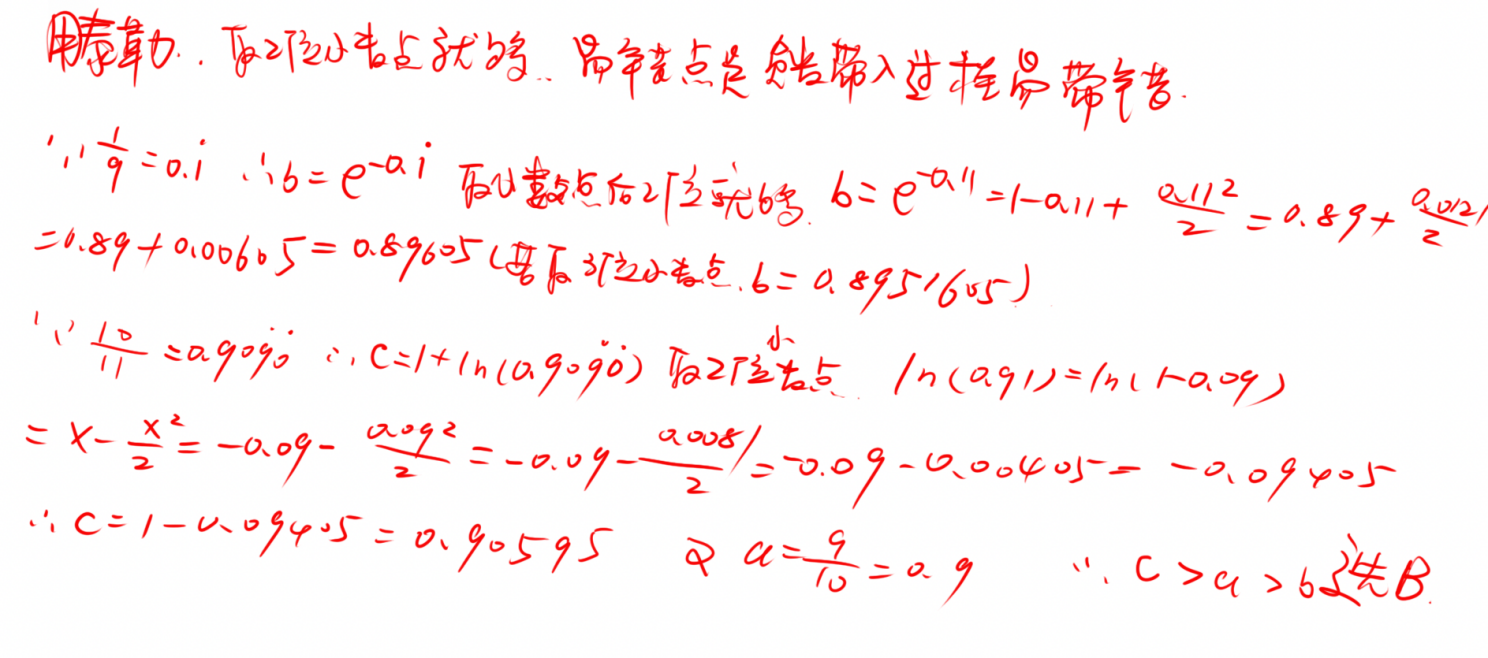 用泰勒. 取2位小数点就够. 易算错点是负数带入过程易带算错.
∵ 1/9 = 0.1̇ ∴ b = e^{-0.1̇} 取小数点后2位就够. b = e^{-0.11} = 1-0.11 + 0.11²/2 = 0.89 + 0.0121/2
= 0.89 + 0.00605 = 0.89605 (若取3位小数点. b = 0.8951605)
∵ 10/11 = 0.909̇0̇ ∴ C = 1 + ln(0.909̇0̇) 取2位小数点 ln(0.91) = ln(1-0.09)
= x - x²/2 = -0.09 - 0.09²/2 = -0.09 - 0.0081/2 = -0.09 - 0.00405 = -0.09405
∴ C = 1 - 0.09405 = 0.90595 又 a = 9/10 = 0.9 ∴ C > a > b 选B.